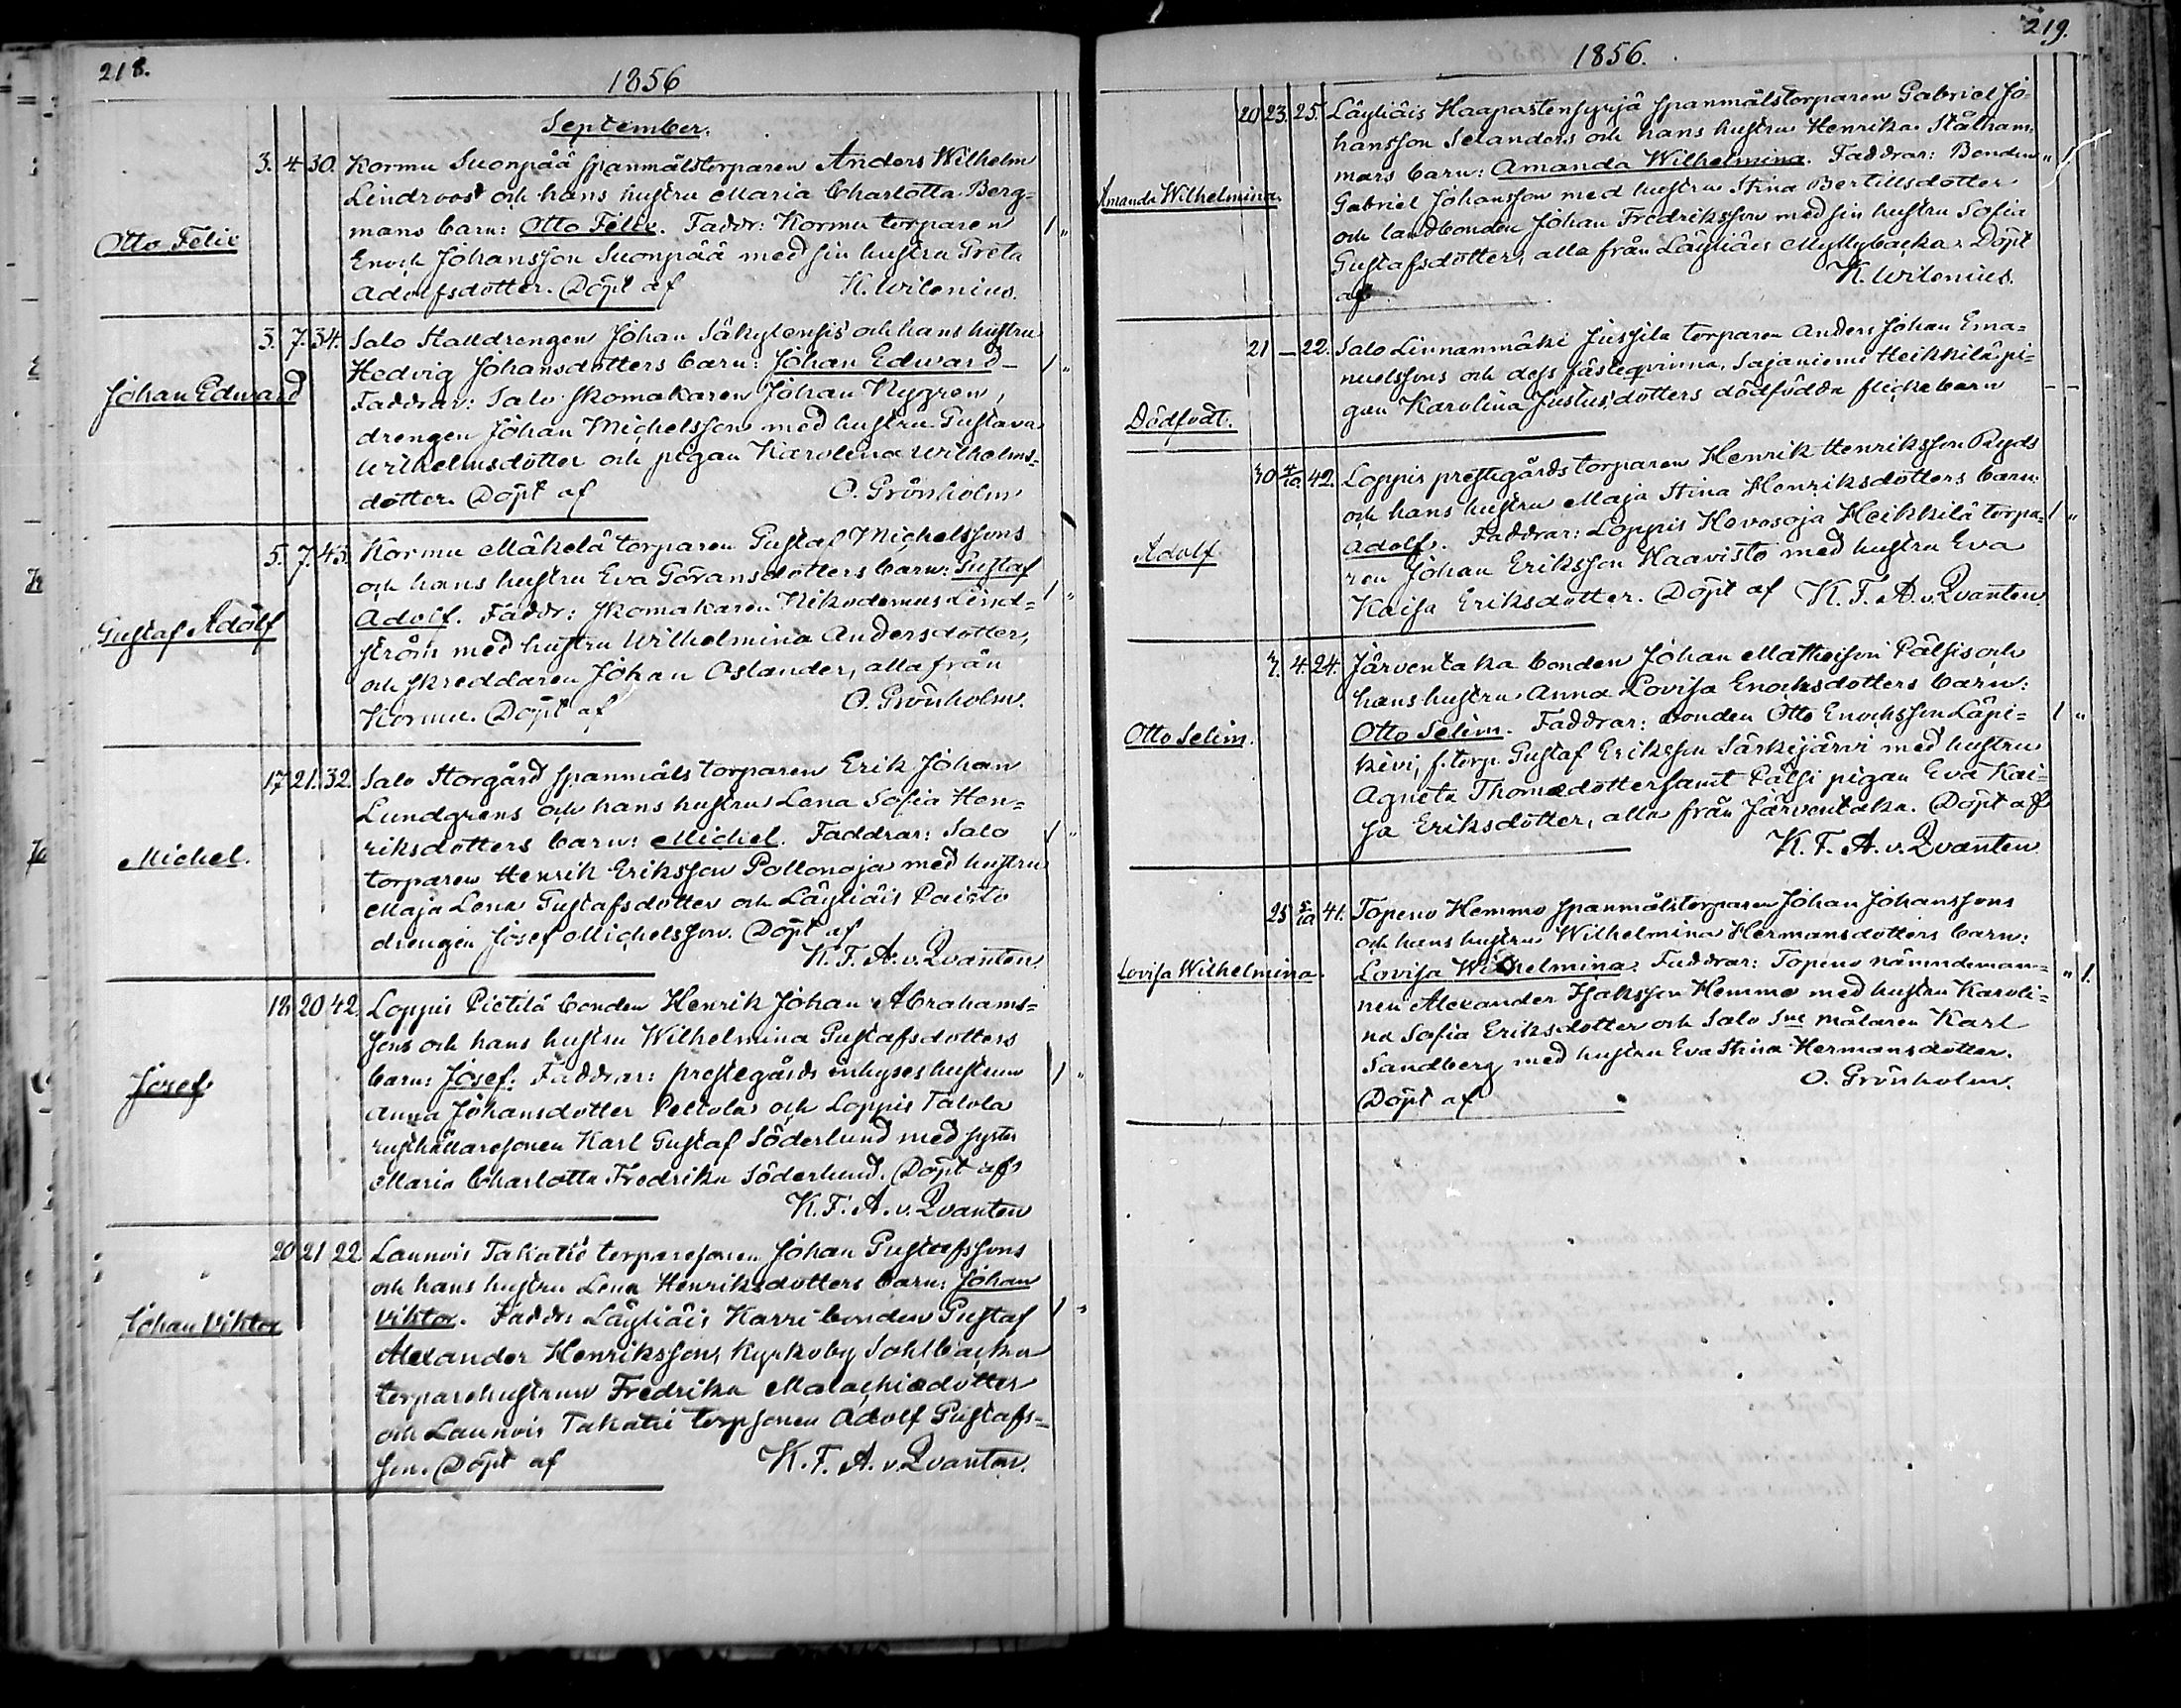 218.
1856
September.
Otto Felix
3. 4. 30. Kormu Suonpää spanmålstorparen Anders Wilhelm
Lindroos och hans hustru Maria Charlotta Berg=
mans barn: Otto Felix. Faddr: Kormu torparen 1 "
Enoch Johansson Suonpää med sin hustru Greta
Adolfsdotter. Döpt af K. Wilenius.
Johan Edward
3. 7. 34. Salo Stalldrengen Johan Säkylensis och hans hustru
Hedvig Johansdotters barn: Johan Edward – 1 "
Faddrar: Salo skomakaren Johan Nygren,
drengen Johan Michelsson med hustru Gustava
Wilhelmsdotter och pigan Karolina Wilhelms=
dotter. Döpt af O. Grönholm
Gustaf Adolf
5. 7. 43. Kormu Mäkelä torparen Gustaf Michelssons
och hans hustru Eva Göransdotters barn: Gustaf
Adolf. Faddr: skomakaren Nikodemus Lind= 1 "
ström med hustru Wilhelmina Andersdotter,
och skreddaren Johan Oslander, alla från
Kormu. Döpt af O. Grönholm.
Michel.
17 21. 32. Salo Storgård spanmåls torparen Erik Johan
Lundgrens och hans hustru Lena Sofia Hen=
riksdotters barn: Michel. Faddrar: Salo 1 "
torparen Henrik Eriksson Pollonoja med hustru
Maja Lena Gustafsdotter och Läyliäis Paisto
drengen Josef Michelsson. Döpt af
K. F. A. v. Qvanten.
Josef
18 20 42 Loppis Pietilä bonden Henrik Johan Abrahams=
sons och hans hustru Wilhelmina Gustafsdotters
barn: Josef. Faddrar: prestegårds inhyses hustrun 1 "
Anna Johansdotter Peltola och Loppis Talola
rusthållaresonen Karl Gustaf Söderlund med syster
Maria Charlotta Fredrika Söderlund. Döpt af
K. F. A. v. Qvanten
Johan Viktor
20 21 22 Launois Takatie torparesonen Johan Gustafssons
och hans hustru Lena Henriksdotters barn: Johan
Viktor. Faddr: Läyliäis Karri bonden Gustaf 1 "
Alexander Henriksson, Kyrkoby Sohlbacka
torparehustrun Fredrika Malachiædotter
och Launois Takatie torpsonen Adolf Gustafs=
son. Döpt af K. F. A. v. Qvanten.
219.
1856.
Amanda Wilhelmina.
20 23. 25. Läyliäis Haapastensyrjä spanmålstorparen Gabriel Jo=
hansson Selanders och hans hustru Henrika Stålham=
mars barn: Amanda Wilhelmina. Faddrar: Bonden " 1
Gabriel Johansson med hustru Stina Bertillsdotter
och landbonden Johan Fredriksson med sin hustru Sofia
Gustafsdotter, alla från Läyliäis Myllybacka. Döpt
af K. Wilenius.
Dödfödt.
21 – 22. Salo Linnanmäki Jussila torparen Anders Johan Ema=
nuelssons och dess fästeqvinna, Sajaniemi Heikkilä pi=
gan Karolina Justusdotters dödfödda flickebarn – –
Adolf.
30 4/10 42. Loppis prestegårds torparen Henrik Henriksson Ryds
och hans hustru Maja Stina Henriksdotters barn:
Adolf. Faddrar: Loppis Hevosoja Heikkilä torpa= 1 "
ren Johan Eriksson Haavisto med hustru Eva
Kaisa Eriksdotter. Döpt af K. F. A. v. Qvanten.
Otto Selim.
4. 24. Järventaka bonden Johan Matheison Pälsis och
hans hustru Anna Lovisa Enochsdotters barn:
Otto Selim. Faddrar: bonden Otto Enochsson Läpi= 1 "
kivi, f. torp. Gustaf Eriksson Särkijärvi med hustru
Agneta Thomædotter samt Pälsi pigan Eva Kai=
sa Eriksdotter, alla från Järventaka. Döpt af
K. F. A. v. Qvanten
Lovisa Wilhelmina.
25 5/10 41. Topeno Hemmo spanmålstorparen Johan Johanssons
och hans hustru Wilhelmina Hermansdotters barn:
Lovisa Wilhelmina. Faddrar: Topeno nämndeman= " 1.
nen Alexander Isaksson Hemmo med hustru Karoli=
na Sofia Eriksdotter och Salo målaren Karl
Sandberg med hustru Eva Stina Hermansdotter.
Döpt af O. Grönholm.